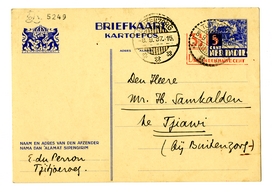 5249
BRIEFKAART
KARTOEPOS
5
CENT
NED. INDIE
Den Heer
Mr. H. Samkalden
te Tjiawi
(bij Buitenzorg)
NAAM EN ADRES VAN DEN AFZENDER
NAMA DAN ALAMAT SIPENGIRIM
E. du Perron
Tjitjoeroeg.